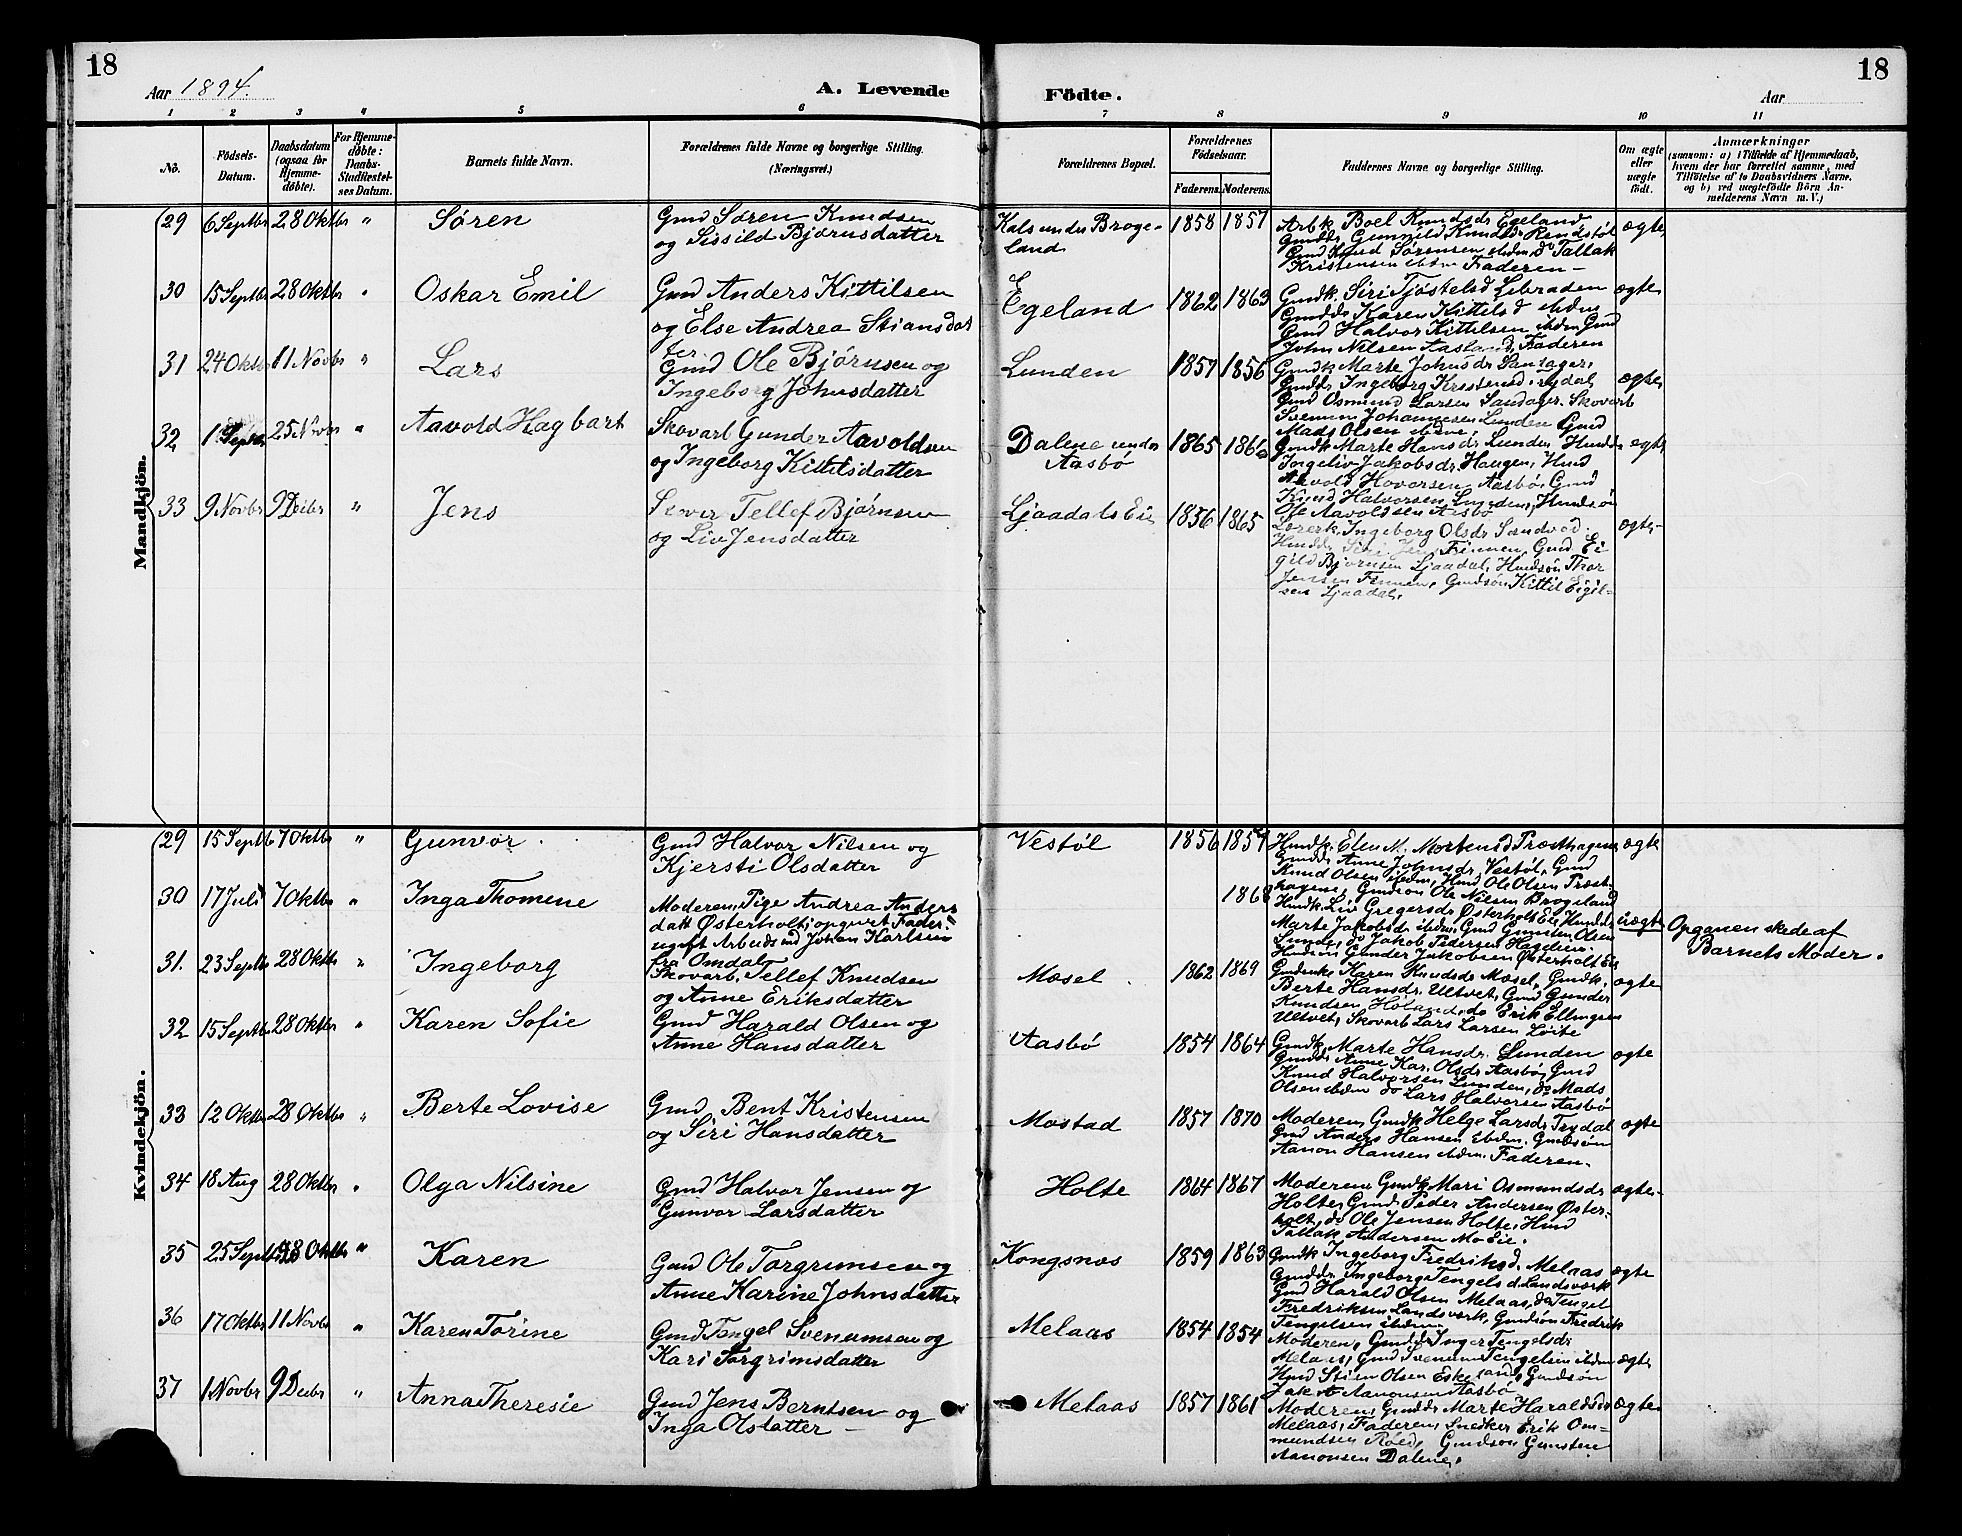 18
Aar 1894.
A. Levende
Födte.
Aar
18
1 2 3 4 5 6 7 8 9 10 11
No.
Födsels-
Datum.
Daabsdatum
(ogsaa for
Hjemme-
döbte).
For Hjemme-
döbte:
Daabs-
Stadfæstel-
ses Datum.
Barnets fulde Navn.
Forældrenes fulde Navne og borgerlige Stilling.
(Næringsvei.)
Forældrenes Bopæl.
Forældrenes
Födselsaar.
Faderens. Moderens.
Faddernes Navne og borgerlige Stilling.
Om ægte
eller
uægte
födt.
Anmærkninger
(saasom: a) i Tilfælde af Hjemmedaab,
hvem der har forrettet samme, med
Tilföielse af to Daabsvidners Navne.
og b) ved uægtefödte Börn An-
melderens Navn m. V.)
Mandkjön.
29 6 Septbr 28 Oktbr " Søren
Gmd Søren Knudsen
og Sissild Bjørnsdatter
Kals under Broge-
land
1858 1857
Arbk. Boel Knudsdr Egeland
Gmdd. Gunnild Knudsdr Rendstøl
Gmd Knud Sørensen ibdm do Tallak
Kristensen ibdm Faderen -
ægte
30 15 Septbr 28 Oktbr " Oskar Emil
Gmd Anders Kittilsen
og Else Andrea Stiansdat
ter
Egeland
1862 1863
Gmdk. Siri Tjøstelsd Libraden
Gmdd. Karen Kittilsd ibdm
Gmd Halvor Kittelsen ibdm Gmd
John Nilsen Aasland, Faderen
ægte
31 24 Oktbr 11 Novbr " Lars
Gmd Ole Bjørnsen og
Ingeborg Johnsdatter
Lunden
1857 1856
Gmdk Marte Johnsdr Sandager,
Gmdd. Ingeborg Kristensd. Trydal
Gmd Osmund Larsen Sandager. Skovarb
Svenum Johannesen Lunden Gmd
Mads Olsen ibdm
ægte
32 1 Septbr 25 Novbr " Aavold Hagbart
Skovarb Gunder Aavoldsen
og Ingeborg Kittilsdatter
Dalene under
Aasbø
1865
Gmdk Marte Hansdr Lunden Hmdd.
Ingeliv Jakobsdr Haugen, Hmd
Aavold Hovorsen Aasbø, Gmd
Knud Halvorsen Lunden, Hmdsøn
Ole Aavoldsen Aasbø
ægte
33 9 Novbr 9 Decbr " Jens
Tellef Bjørnsen
og Liv Jensdatter
Ljaadals Eie
1856 1865
Lærerk. Ingeborg Olsdr Sandvod.
Hmdd. Siri Jens Finnen, Gmd Ei
gild Bjørnsen Ljaadal, Hmdsøn Thor
Jensen Finnen, Gmdsøn Kittil Eigil-
sen Ljaadal.
ægte
Kvindekjön.
29 15 Septb 7 Oktbr " Gunvor
Gmd Halvor Nilsen og
Kjersti Olsdatter
Vestøl
1856 1857
Hmdk. Elen M. Mortensd Præsthagene
Gmdd. Anne Johnsdr. Vestøl, Gmd
Knud Olsen ibdm, Hmd Ole Olsen Præst
hagene, Gmdsøn Ole Nilsen Brogeland
ægte
30 17 Juli 7 Oktbr " Inga Thomine
Moderen, Pige Andrea Anders
datt Østerholt; opgivet Fader:
ugift Arbeidsmd Johan Karlsen
fra Omdal
1868
Hmdk. Liv Gregersdr Østerholt Eie Hmdd.
Marte Jakobsdr ibdm. Gmd Gunsten Olsen
Lunde, do Jakob Pedersen Hagelien.
Hmdsøn Gunder Jakobsen Østerholt Eie
uægte
Opgaven skede af
Barnets Moder.
31. 23 Septbr 28 Oktbr " Ingeborg
Skovarb. Tellef Knudsen
og Anne Eriksdatter
Mæsel
1862 1869
Gmdenke Karen Knudsdr Mæsel, Gmdk.
Berte Hansdr. Ultvet, Gmd Gunder
Knudsen Høland, do Erik Ellingsen
Ultvet, Skovarb Lars Larsen Løite
ægte
32 15 Septbr 28 Oktbr " Karen Sofie
Gmd Harald Olsen og
Anne Hansdatter
Aasbø
1854 1864
Gmdk. Marte Hansdr. Lunden
Gmdd. Anne Kar. Olsdr Aasbø, Gmd
Knud Halvorsen Lunden, do Mads
Olsen ibdm do Lars Halvorse Aasbø
ægte
33 12 Oktbr 28 Oktbr " Berte Lovise
Gmd Bent Kristensen
og Siri Hansdatter
Mostad
1857 1870
Moderen, Gmdk Helge Larsdr, Trydal
Gmd Anders Hansen Ebdm. Gmdsøn
Aanon Hansen ibdm. Faderen.
ægte
34 18 Aug 28 Oktbr " Olga Nilsine
Gmd Halvor Jensen og
Gunvor Larsdatter
Holte
1864 1867
Moderen Gmdk Mari Osmundsdr
Holte, Gmd Peder Andersen Øster-
holt, do Ole Jensen Holte, Hmd
Tallak Andersen Mo Eie.
ægte
35 25 Septbr 28 Oktbr " Karen
Gmd Ole Torgrimsen og
Anne Karine Johnsdatter
Kongsnæs
1859 1863
Gmdk Ingeborg Fredriksd. Melaas
Gmdd. Ingeborg Tengels d. Landsværk
Gmd Harald Olsen Melaas, do Tengel
Fredriksen Landsverk, Gmdsøn Fredrik
Tengelsen ibdm
ægte
36 17 Oktbr 11 Novbr " Karen Torine
Gmd Tengel Svenumsen og
Kari Torgrimsdatter
Melaas
1854 1854
Moderen, Gmdd. Inger Tengelsdr
Melaas, Gmd Svenum Tengelsen ibdm
Hmd Stien Olsen Eskeland, Gmdsøn
Jak. A. Aanonsen Aasbø
ægte
37 1 Novbr 9 Decbr " Anna Theresie
Gmd Jens Berntsen og
Inga Olsdatter -
Melaas
1857 1861
Moderen, Gmdd. Marte Haraldsdr
Melaas, Faderen, Snedker Erik Om-
mundsen Røed, Gmdsøn Gunsten
Aanonsen Dalene.
ægte